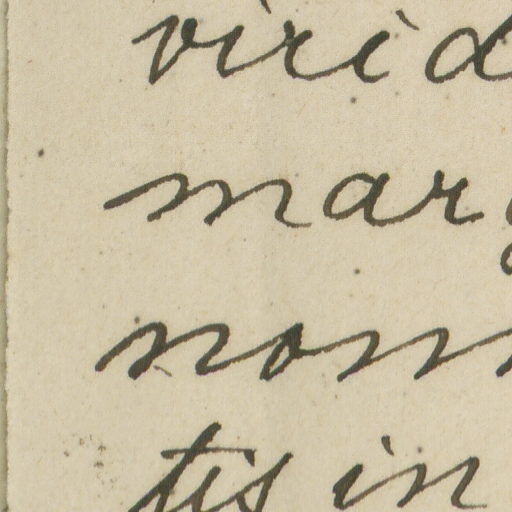 virid
mar
non
tis in